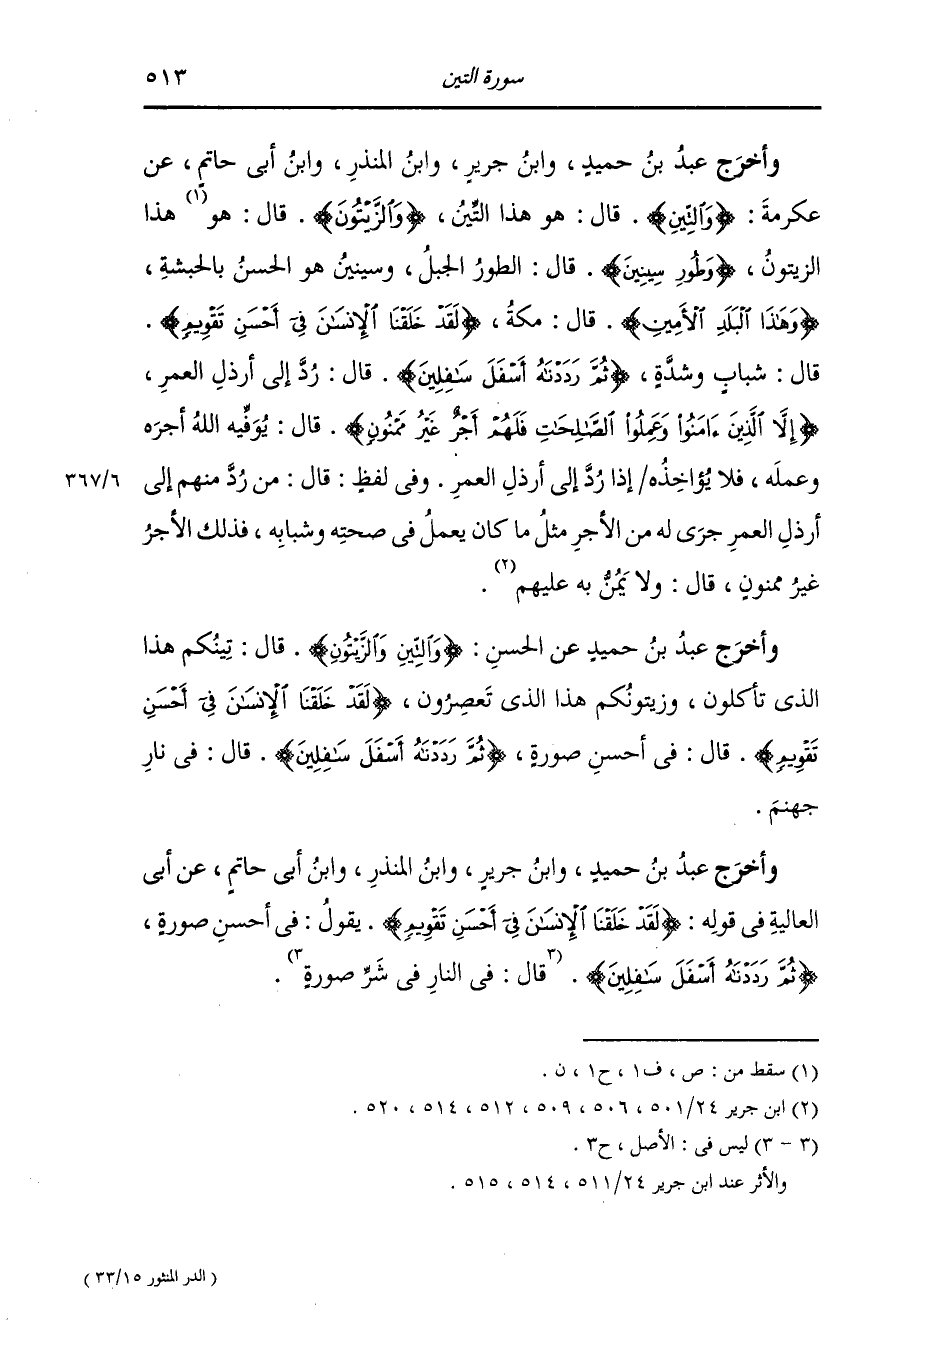 سورة التين ٥١٣
وأخرَج عبدُ بنُ حميدٍ ، وابنُ جريرٍ ، وابنُ المنذرِ ، وابنُ أبى حاتمٍ ، عن
عكرمةَ : ﴿وَٱلتِّينِ﴾ . قال : هو هذا التِّينُ ، ﴿وَٱلزَّيْتُونَِ﴾ . قال : هو(١) هذا
الزيتونُ ، ﴿وَطُورِ سِينِينَ﴾ . قال : الطورُ الجبلُ ، وسينينُ هو الحسنُ بالحبشةِ ،
﴿وَهَٰذَا ٱلْبَلَدِ ٱلْأَمِينِ﴾ . قال : مكةُ ، ﴿لَقَدْ خَلَقْنَا ٱلْإِنسَٰنَ فِىٓ أَحْسَنِ تَقْوِيمٍ﴾ .
قال : شبابٍ وشدَّةٍ ، ﴿ثُمَّ رَدَدْنَٰهُ أَسْفَلَ سَٰفِلِينَ﴾ . قال : رُدَّ إلى أرذلِ العمرِ ،
﴿إِلَّا ٱلَّذِينَ ءَامَنُوا۟ وَعَمِلُوا۟ ٱلصَّٰلِحَٰتِ فَلَهُمْ أَجْرٌ غَيْرُ مَمْنُونٍ﴾ . قال : يُوَفِّيه اللهُ أجرَه
وعملَه ، فلا يُؤاخِذُه/ إذا رُدَّ إلى أرذلِ العمرِ . وفى لفظٍ : قال : من رُدَّ منهم إلى ٣٦٧/٦
أرذلِ العمرِ جرَى له من الأجرِ مثلُ ما كان يعملُ فى صحتِه وشبابِه ، فذلك الأجرُ
غيرُ ممنونٍ ، قال : ولا يَمُنُّ به عليهم(٢) .
وأخرَج عبدُ بنُ حميدٍ عن الحسنِ : ﴿وَٱلتِّينِ وَٱلزَّيْتُونِ﴾ . قال : تِينُكم هذا
الذى تأكلون ، وزيتونُكم هذا الذى تَعصِرُون ، ﴿لَقَدْ خَلَقْنَا ٱلْإِنسَٰنَ فِىٓ أَحْسَنِ
تَقْوِيمٍ﴾ . قال : فى أحسنِ صورةٍ ، ﴿ثُمَّ رَدَدْنَٰهُ أَسْفَلَ سَٰفِلِينَ﴾ . قال : فى نارِ
جهنمَ .
وأخرَج عبدُ بنُ حميدٍ ، وابنُ جريرٍ ، وابنُ المنذرِ ، وابنُ أبى حاتمٍ ، عن أبى
العاليةِ فى قولِه : ﴿لَقَدْ خَلَقْنَا ٱلْإِنسَٰنَ فِىٓ أَحْسَنِ تَقْوِيمٍ﴾ . يقولُ : فى أحسنِ صورةٍ ،
﴿ثُمَّ رَدَدْنَٰهُ أَسْفَلَ سَٰفِلِينَ﴾ . (٣قال : فى النارِ فى شَرِّ صورةٍ٣) .
(١) سقط من : ص ، ف١ ، ح١ ، ن .
(٢) ابن جرير ٥٠١/٢٤ ، ٥٠٦ ، ٥٠٩ ، ٥١٢ ، ٥١٤ ، ٥٢٠ .
(٣ - ٣) ليس فى : الأصل ، ح٣ .
والأثر عند ابن جرير ٥١١/٢٤ ، ٥١٤ ، ٥١٥ .
( الدر المنثور ٣٣/١٥ )